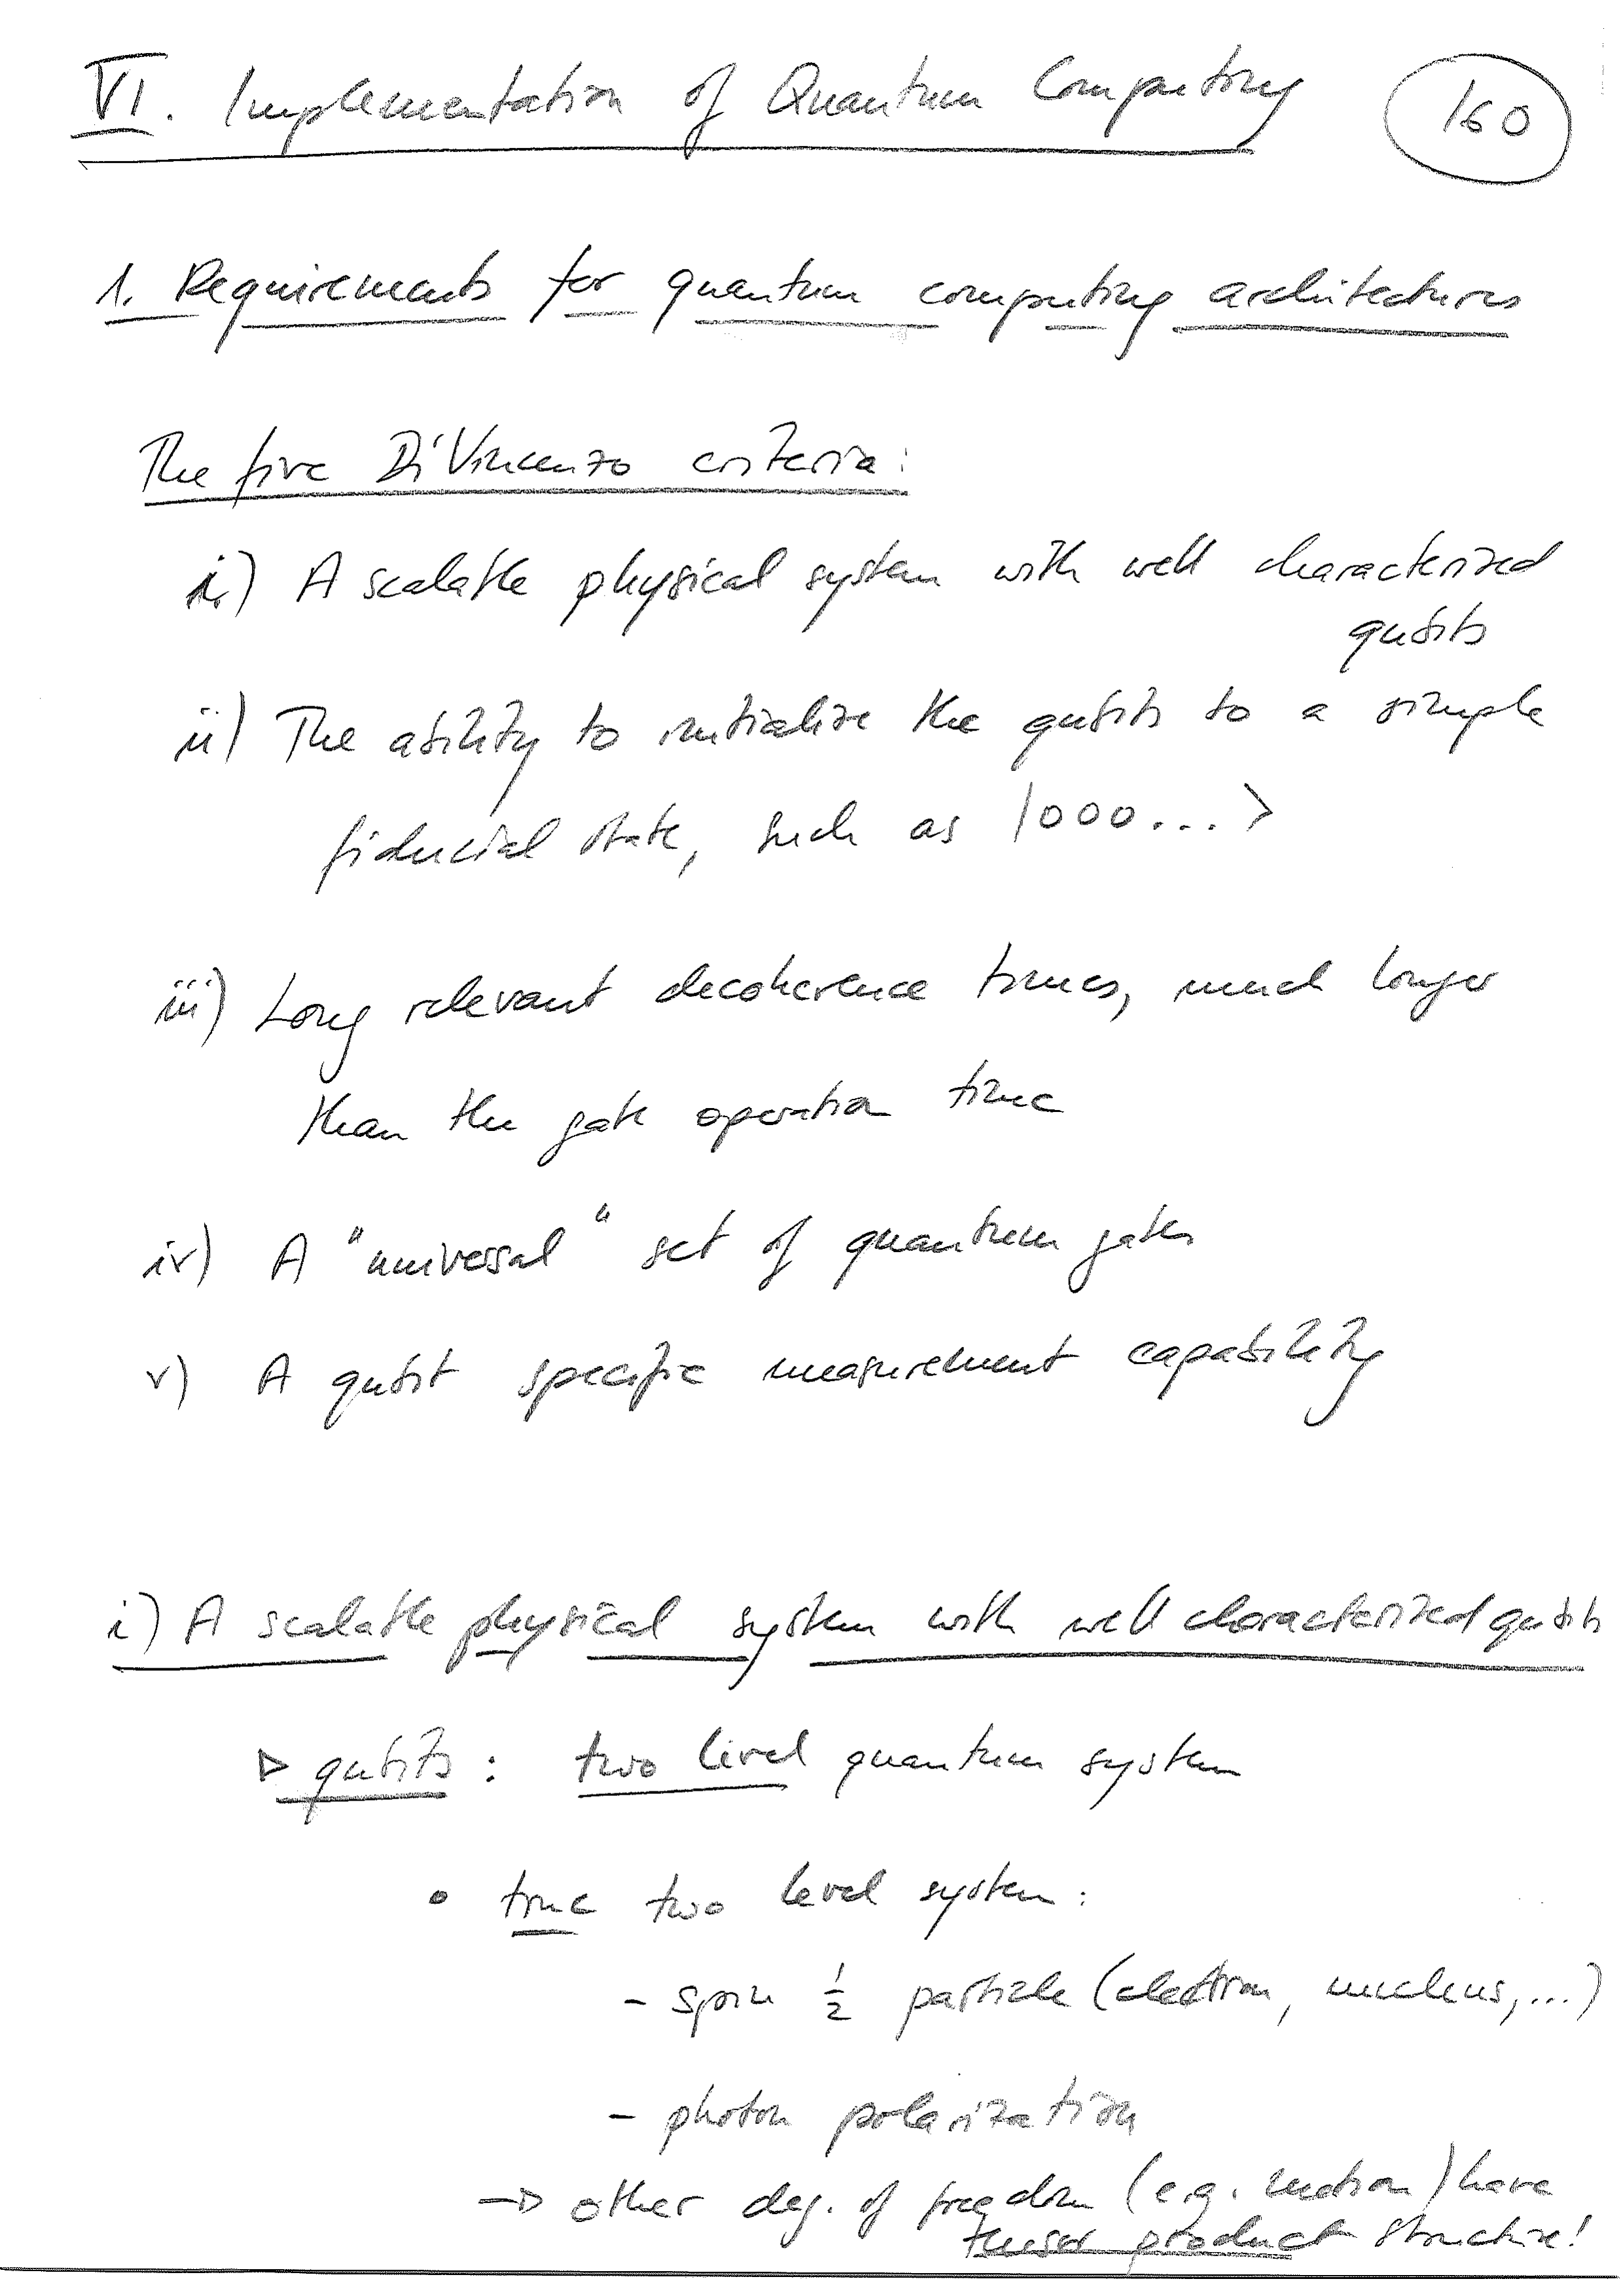 VI. Implementation of Quantum Computing
160
1. Requirements for quantum computing architectures
The five DiVincenzo criteria:
i.) A scalable physical system with well characterized
qubits
ii) The ability to initialize the qubits to a simple
fiducial state, such as |000...>
iii) Long relevant decoherence times, much longer
than the gate operation time
iv) A "universal" set of quantum gates
v) A qubit specific measurement capability
i) A scalable physical system with well characterized qubits
▷ qubits: two level quantum system
• true two level system:
- spin 1/2 particle (electron, nucleus,...)
- photon polarization
→ other deg. of freedom (e.g. motion) have
tensor product structure!